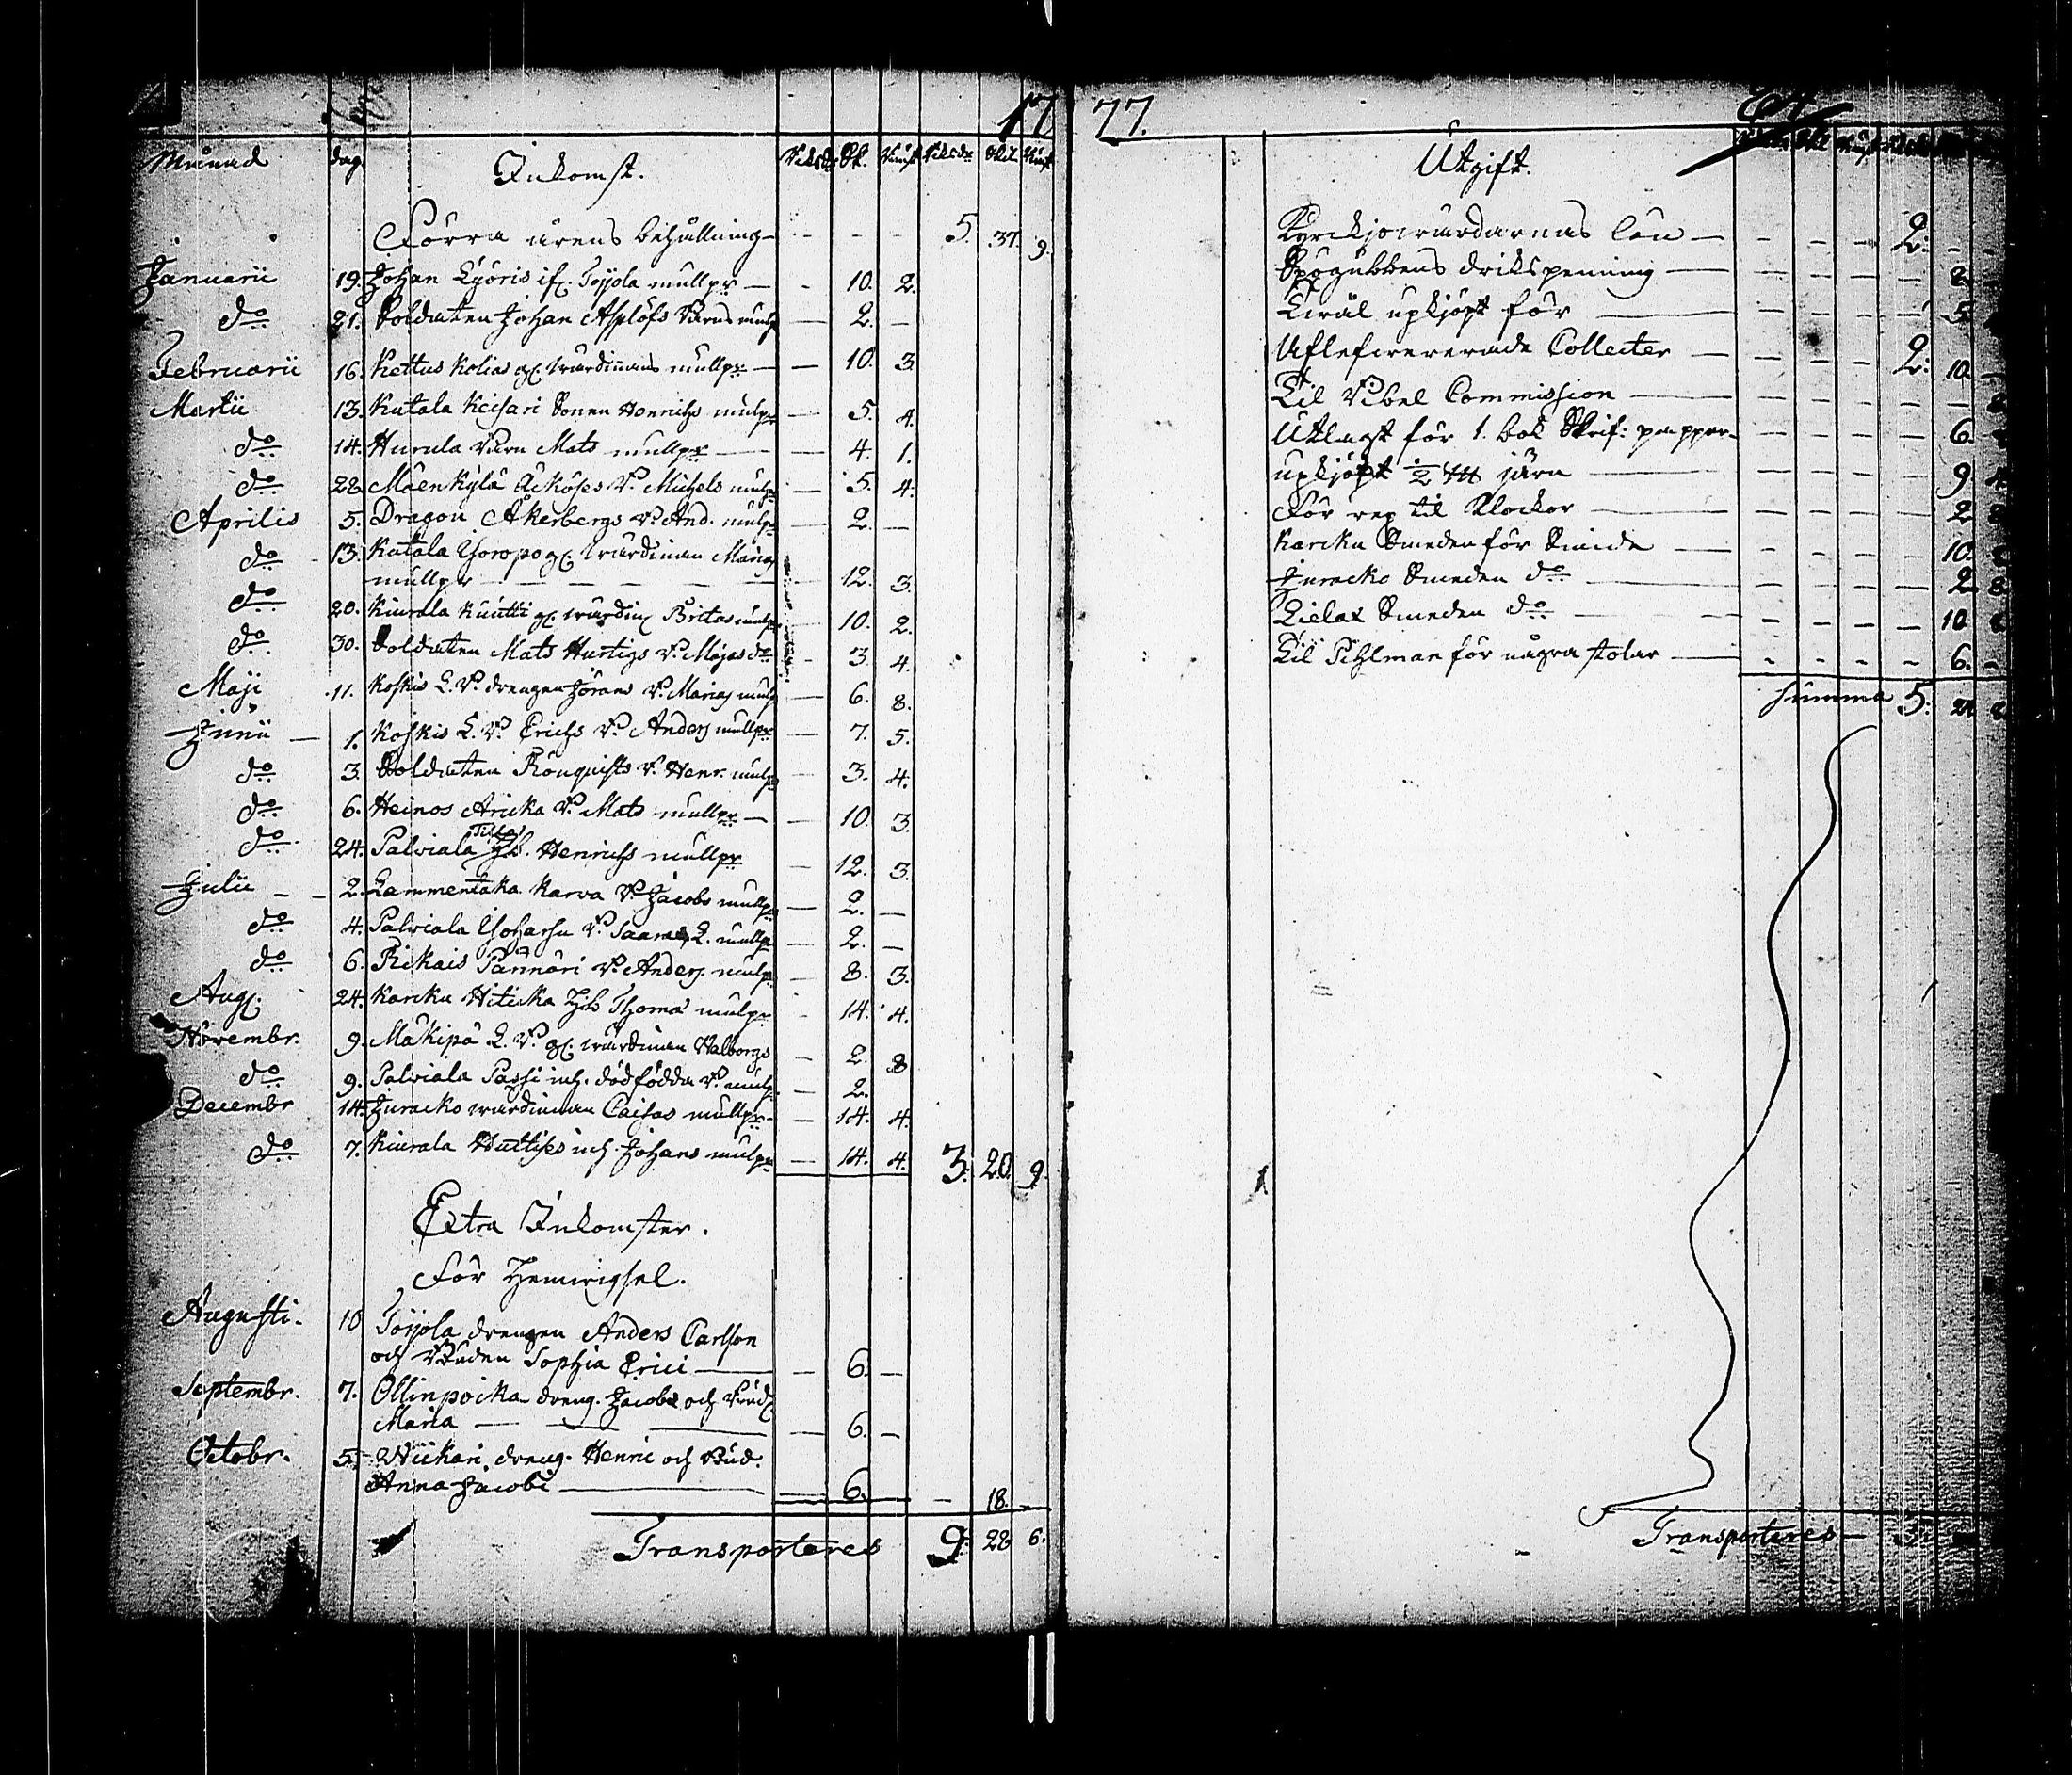 1777.
Månad dag Inkomst. Riksd. Sk. Runst. Riksdr. Skil. Runst.
Förra årens behållning - - - 5. 37. 9.
Januarii 19. Johan Lÿöris if. Toÿola mullpr - 10. 2.
do 21. Soldaten Johan Asplöfs Barns mulp 2. -
Februarii 16. Kettus Kolias gl. wärdinans mullpr - 10. 3.
Martii 13. Kutala Keisari Sonen Henrichs mulpr 5. 4.
do 14. Hurula Barn Mats mullpr 4. 1.
do 28. Mäenkylä Äköses B. Michels mulp 5. 4.
Aprilis 5. Dragon Åkerbergs B. And. mulpr 2. -
do 13. Kutala Yoropo gl. wärdinan Marias
mullpr 12. 3.
do 20. Kiurala Knutti gl. wärdin Britas mulp 10. 2.
do 30. Soldaten Mats Hurtigs B. Majas do 3. 4.
Maji 11. Koskis L. B. drengen Jörans B. Marias mulp 6. 8.
Junii 1. Koskis L. B. Erichs B. Anders mullpr 7. 5.
do 3. Soldaten Rönquists B. Henr. mulpr 3. 4.
do 6. Heinos Aricka B. Mats mullpr 10. 3.
do 24. Palviala Henrichs mullpr 12. 3.
Julii 2. Lammentaka Karva B. Jacobs mullp 2. -
do 4. Palviala Yoharsu B. Saaras L. mullp 2. -
do 6. Rikais Pannäri B. Anders mulp 8. 3.
Aug. 24. Karcku Hiticka Thoma mulpr 14. 4.
Novembr. 9. Mäkipä L. B. gl. wärdinan Walborgs 2. 8
do 9. Palviala Passi inh. dödfödda B. mulp 2.
Decembr 14. Juracko wärdinan Caisas mullpr 14. 4.
do 7. Kiurala Huttises inh. Johans mulpr 14. 4. 3. 20. 9.
Extra Inkomster.
För Hemvigsel.
Augusti. 10 Toÿola drengen Anders Carlsson
och Bruden Sophia Erici 6. -
Septembr. 7. Ollinpoicka dreng. Jacob och Brud.
Maria 6. -
Octobr. 5. Wickari dreng. Henric och Brud.
Anna Jacobi 6. - 18. -
Transporteres 9. 28 6.
Utgift.
Kyrckjowärdarnas lön 2. -
Spögubbens drikspenning 2.
Liwål upkjöpt för 5.
Uflefwererade Collecter 2. 10.
Til Bibel Commission
Utlagt för 1. bok Skrif: papper 6.
upkjöpt 1/2 järn 9.
För rep til Klockor 2
Karcku Smeden för Smide 10.
Juracko Smeden do 2 8
Lielax Smeden do 10
Til Pihlman för några stolar 6. -
Summa 5.
Transporteres